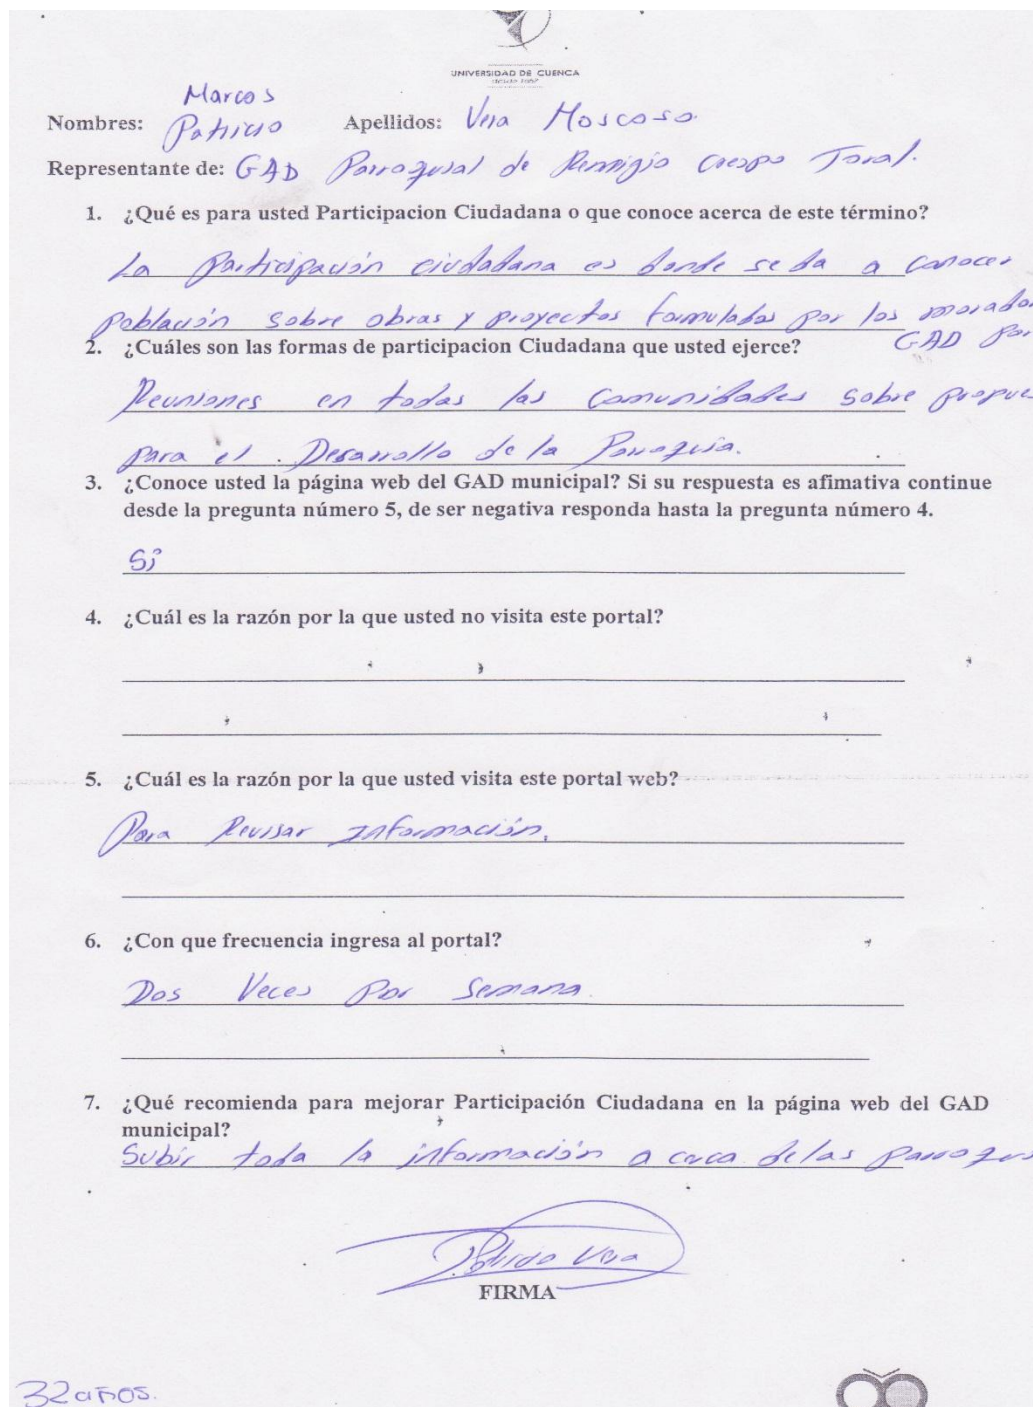 UNIVERSIDAD DE CUENCA
desde 1867
Marcos
Nombres: Patricio Apellidos: Vera Moscoso.
Representante de: GAD Parroquial de Remigio Crespo Toral.
1. ¿Qué es para usted Participacion Ciudadana o que conoce acerca de este término?
La Participación ciudadana es donde se da a conocer
población sobre obras y proyectos formulados por los morador
GAD Par
2. ¿Cuáles son las formas de participacion Ciudadana que usted ejerce?
Reuniones en todas las Comunidades sobre propue
para el Desarrollo de la Parroquia.
3. ¿Conoce usted la página web del GAD municipal? Si su respuesta es afimativa continue
desde la pregunta número 5, de ser negativa responda hasta la pregunta número 4.
Si
4. ¿Cuál es la razón por la que usted no visita este portal?
5. ¿Cuál es la razón por la que usted visita este portal web?
Para Revisar Información.
6. ¿Con que frecuencia ingresa al portal?
Dos Veces Por Semana.
7. ¿Qué recomienda para mejorar Participación Ciudadana en la página web del GAD
municipal?
Subir toda la información a cerca de las parroqui
Patricio Vera
FIRMA
32 años.